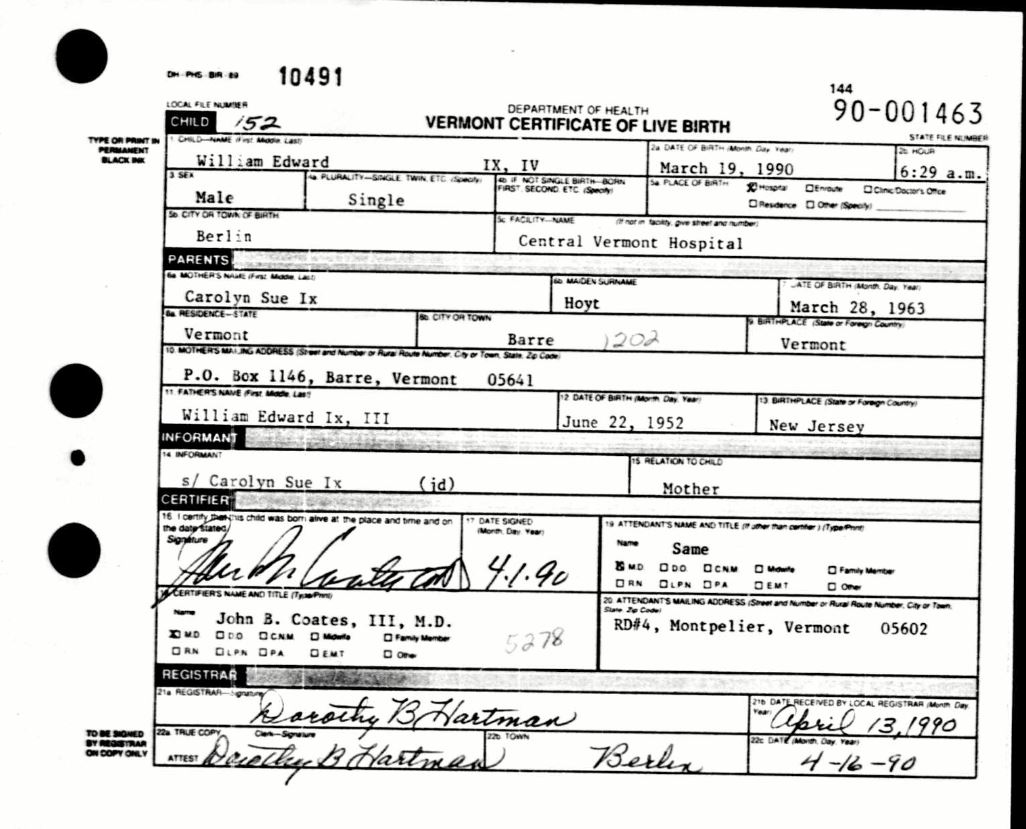 DH-PHS-BIR-89 10491
144
LOCAL FILE NUMBER
DEPARTMENT OF HEALTH
90-001463
CHILD 152
VERMONT CERTIFICATE OF LIVE BIRTH
STATE FILE NUMBER
TYPE OR PRINT IN
PERMANENT
BLACK INK
1 CHILD—NAME (First, Middle, Last)
William Edward IX, IV
2a DATE OF BIRTH (Month, Day, Year)
March 19, 1990
2b HOUR
6:29 a.m.
3 SEX
Male
4a PLURALITY—SINGLE, TWIN, ETC. (Specify)
Single
4b IF NOT SINGLE BIRTH—BORN
FIRST, SECOND, ETC. (Specify)
5a PLACE OF BIRTH
Hospital Enroute Clinic/Doctor's Office
Residence Other (Specify)
5b CITY OR TOWN OF BIRTH
Berlin
5c FACILITY—NAME (If not in facility, give street and number)
Central Vermont Hospital
PARENTS
6a MOTHER'S NAME (First, Middle, Last)
Carolyn Sue Ix
6b MAIDEN SURNAME
Hoyt
DATE OF BIRTH (Month, Day, Year)
March 28, 1963
8a RESIDENCE—STATE
Vermont
8b CITY OR TOWN
Barre 1202
9 BIRTHPLACE (State or Foreign Country)
Vermont
10 MOTHER'S MAILING ADDRESS (Street and Number or Rural Route Number, City or Town, State, Zip Code)
P.O. Box 1146, Barre, Vermont 05641
11 FATHER'S NAME (First, Middle, Last)
William Edward Ix, III
12 DATE OF BIRTH (Month, Day, Year)
June 22, 1952
13 BIRTHPLACE (State or Foreign Country)
New Jersey
INFORMANT
14 INFORMANT
s/ Carolyn Sue Ix (jd)
15 RELATION TO CHILD
Mother
CERTIFIER
16 I certify that this child was born alive at the place and time and on
the date stated
Signature
17 DATE SIGNED
(Month, Day, Year)
4.1.90
19 ATTENDANT'S NAME AND TITLE (If other than certifier) (Type/Print)
Name Same
M.D. D.O. C.N.M. Midwife Family Member
R.N. L.P.N. P.A. E.M.T. Other
18 CERTIFIER'S NAME AND TITLE (Type/Print)
Name John B. Coates, III, M.D.
M.D. D.O. C.N.M. Midwife Family Member
R.N. L.P.N. P.A. E.M.T. Other
5278
20 ATTENDANT'S MAILING ADDRESS (Street and Number or Rural Route Number, City or Town,
State, Zip Code)
RD#4, Montpelier, Vermont 05602
REGISTRAR
21a REGISTRAR—Signature
Dorothy B Hartman
21b DATE RECEIVED BY LOCAL REGISTRAR (Month, Day,
Year)
April 13, 1990
TO BE SIGNED
BY REGISTRAR
ON COPY ONLY
22a TRUE COPY Clerk—Signature
ATTEST Dorothy B Hartman
22b TOWN
Berlin
22c DATE (Month, Day, Year)
4-16-90